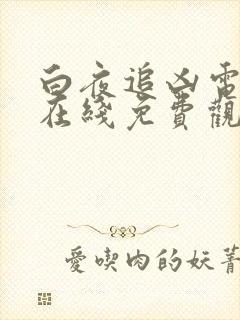 白夜追凶電
在綫免費觀
愛喫肉的妖菁